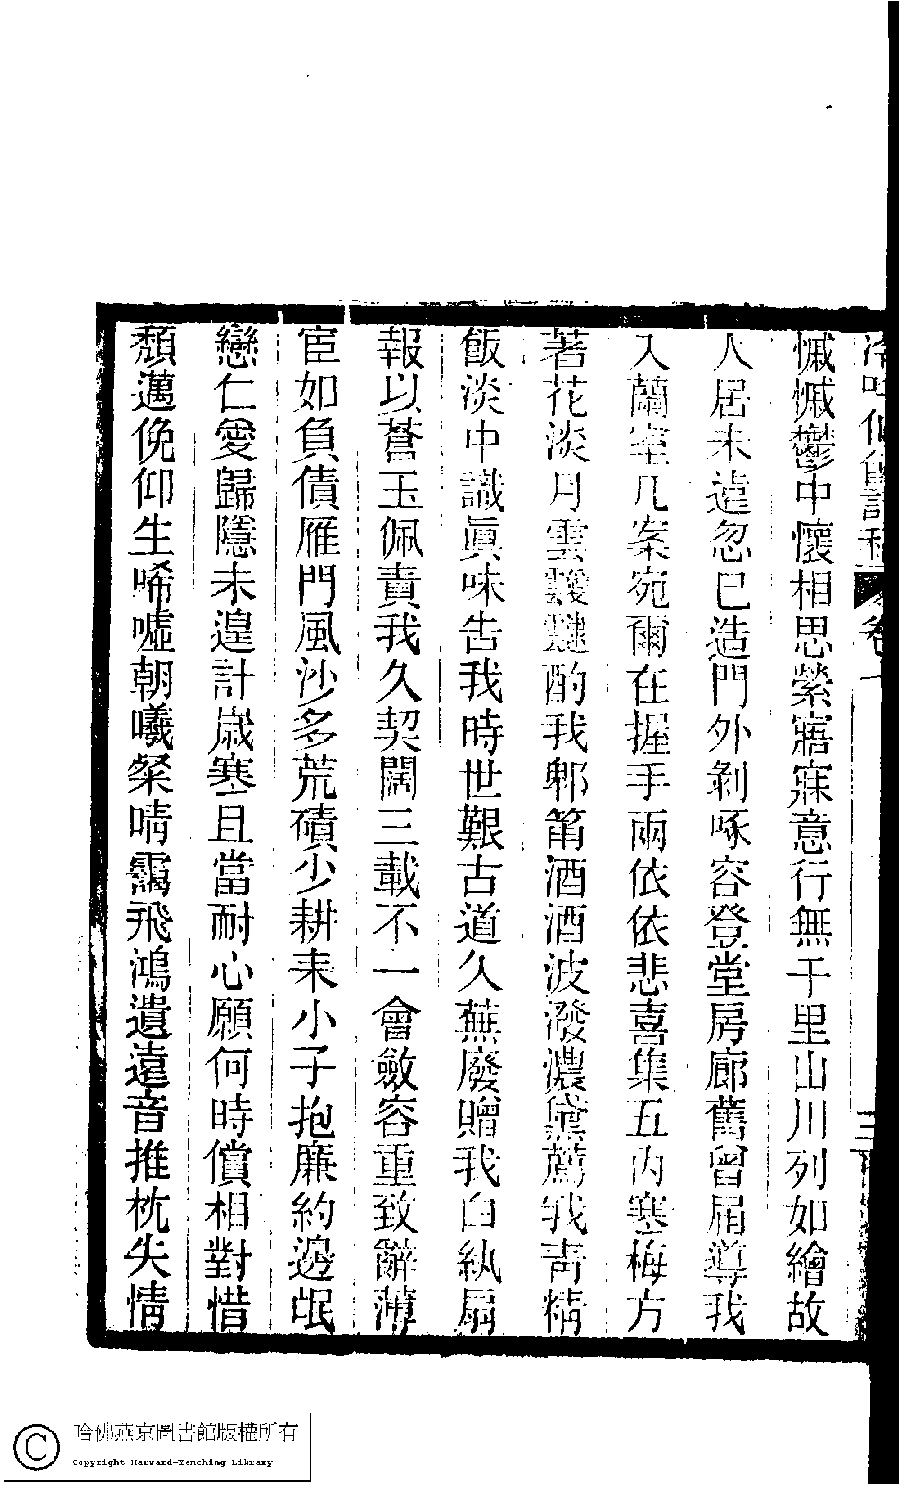 冷吟仙館詩稿 卷一 三
慽慽鬱中懷相思縈寤寐意行無千里山川列如繪故
人居未遠忽已造門外剝啄容登堂房廊舊曾届導我
入蘭室几案宛爾在握手兩依依悲喜集五內寒梅方
著花淡月雲靉靆酌我郫筩酒酒波潑濃黛薦我青精
飯淡中識眞味告我時世艱古道久蕪廢贈我白紈扇
報以蒼玉佩責我久契闊三載不一會斂容重致辭薄
宦如負債雁門風沙多荒磧少耕耒小子抱廉約邊氓
戀仁愛歸隱未遑計歲寒且當耐心願何時償相對惜
頹邁俛仰生唏噓朝曦粲晴靄飛鴻遺遠音推枕失情
哈佛燕京圖書館版權所有
Copyright Harvard-Yenching Library